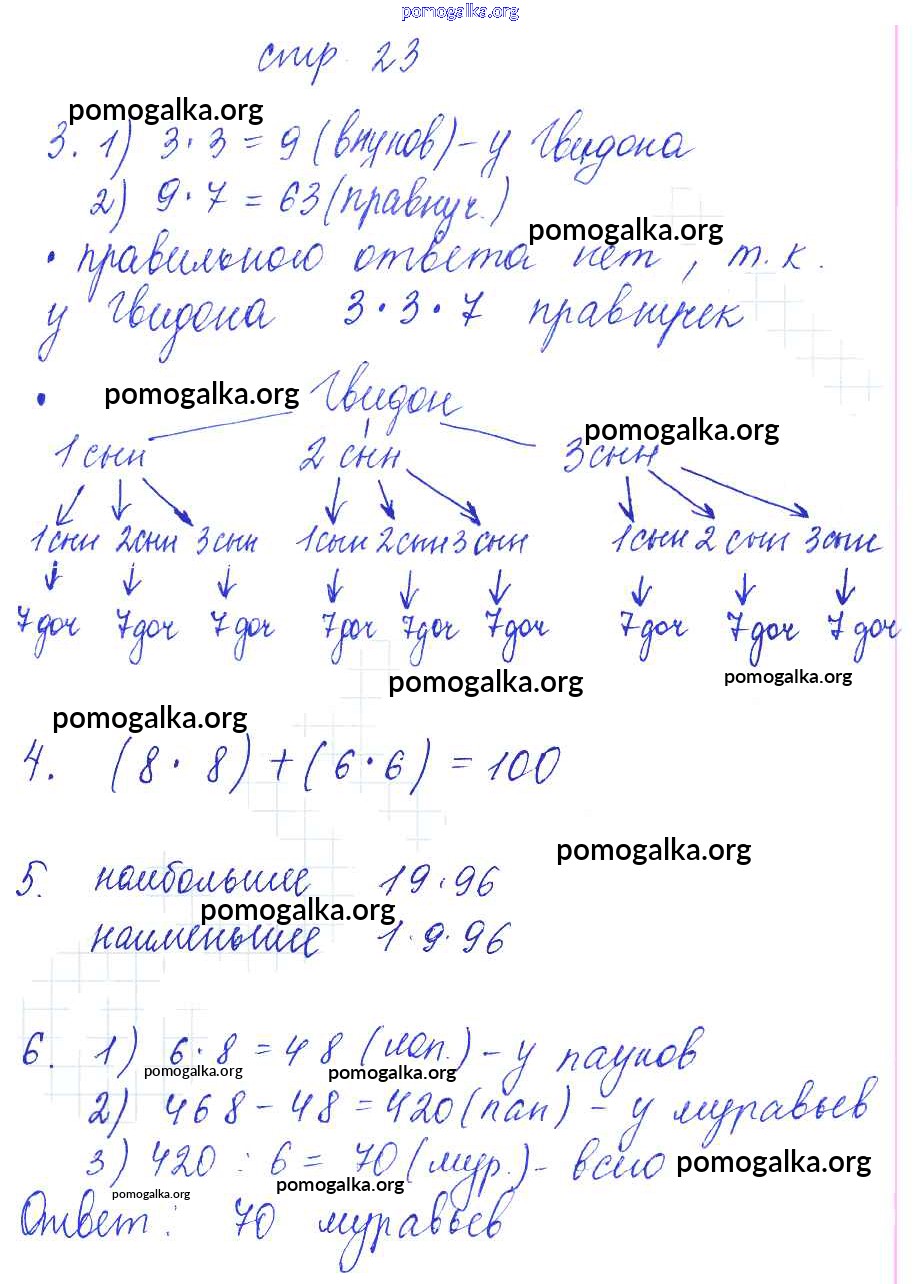 pomogalka.org
стр. 23
pomogalka.org
3. 1) 3·3 = 9 (внуков) - у Гвидона
2) 9·7 = 63 (правнуч.)
pomogalka.org
· правильного ответа нет, т.к.
у Гвидона 3·3·7 правнучек
· pomogalka.org Гвидон
pomogalka.org
1 сын 2 сын 3 сын
1 сын 2 сын 3 сын 1 сын 2 сын 3 сын 1 сын 2 сын 3 сын
7 доч 7 доч 7 доч 7 доч 7 доч 7 доч 7 доч 7 доч 7 доч
pomogalka.org pomogalka.org
pomogalka.org
4. (8·8) + (6·6) = 100
pomogalka.org
5. наибольшее 19·96
pomogalka.org
наименьшее 1·9·96
6. 1) 6·8 = 48 (лап.) - у пауков
pomogalka.org pomogalka.org
2) 468 - 48 = 420 (лап) - у муравьев
3) 420 : 6 = 70 (мур.) - всего pomogalka.org
pomogalka.org pomogalka.org
Ответ: 70 муравьев